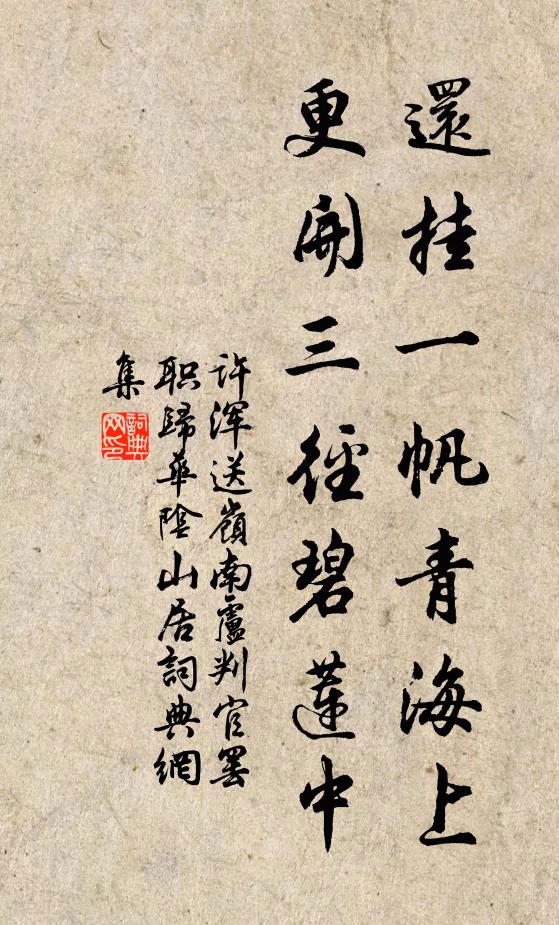 還挂一帆青海上
更開三徑碧蓮中
许浑送嶺南盧判官罢
职歸華陰山居詞典網
集
詞典网印